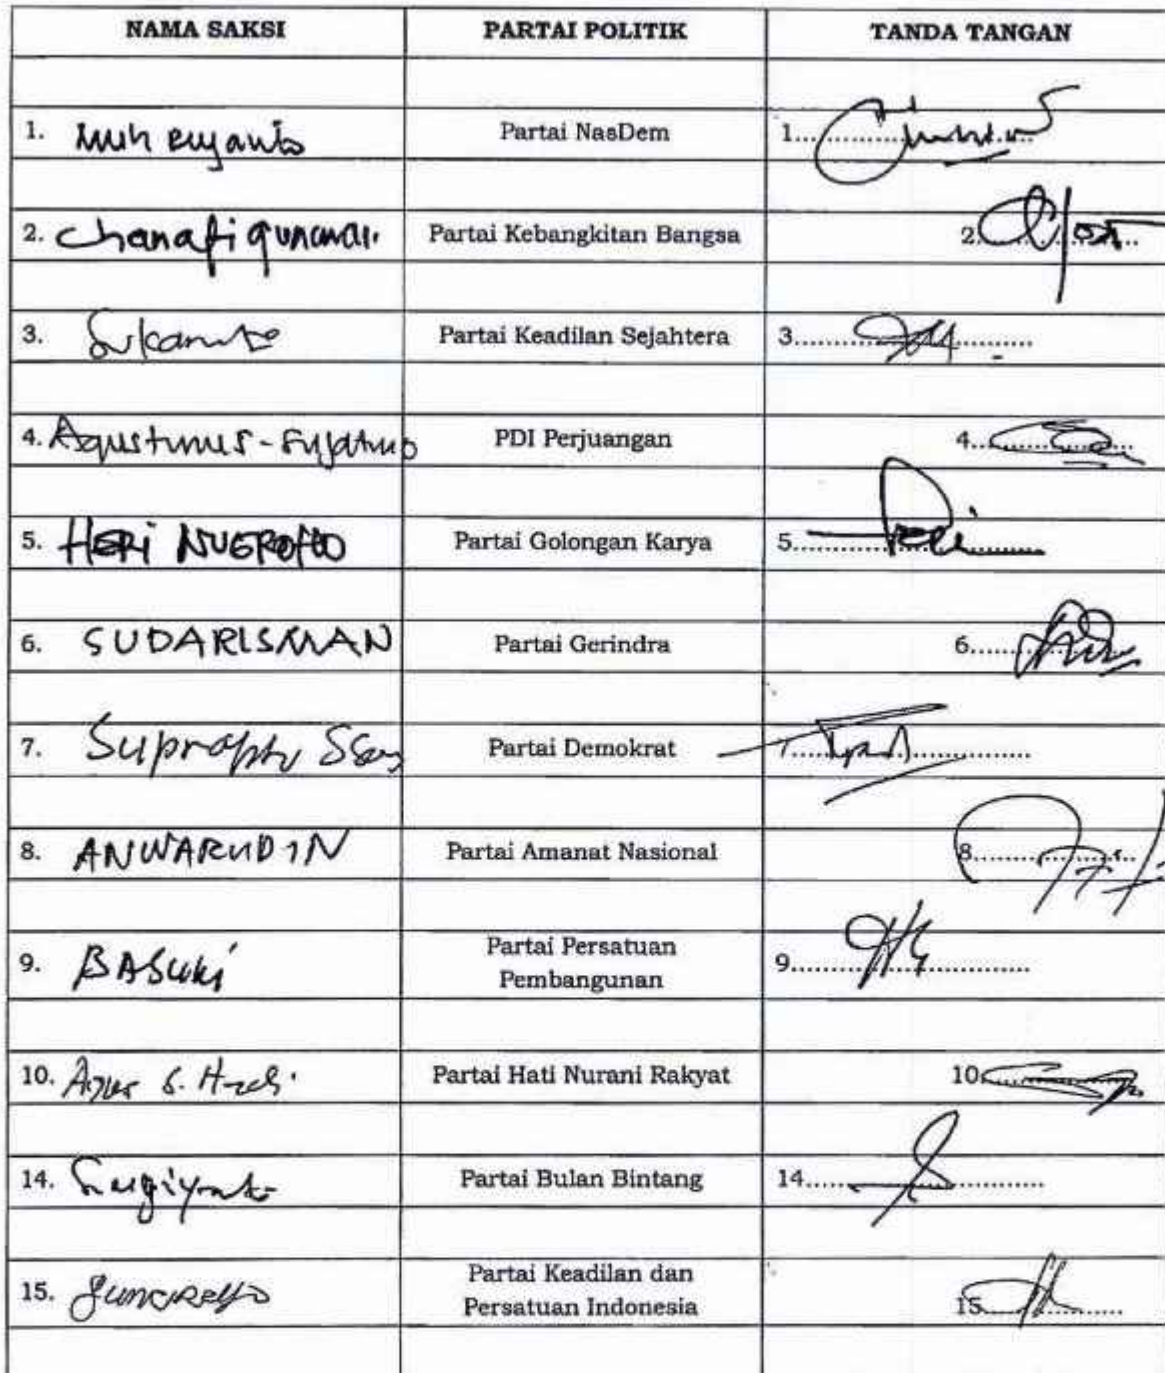 NAMA SAKSI PARTAI POLITIK TANDA TANGAN
1. Muh Eryanto Partai NasDem 1..................
2. Chanafi Gunawan. Partai Kebangkitan Bangsa 2..................
3. Sukamto Partai Keadilan Sejahtera 3..................
4. Agustinus - Sujatmo PDI Perjuangan 4..................
5. HERI NUGROHO Partai Golongan Karya 5..................
6. SUDARISMAN Partai Gerindra 6..................
7. Suprapto Partai Demokrat 7..................
8. ANWARUDIN Partai Amanat Nasional 8..................
9. BASUKi Partai Persatuan
Pembangunan 9..................
10. Agus S. Hadi. Partai Hati Nurani Rakyat 10..................
14. Sugiyanto Partai Bulan Bintang 14..................
15. Partai Keadilan dan
Persatuan Indonesia 15..................